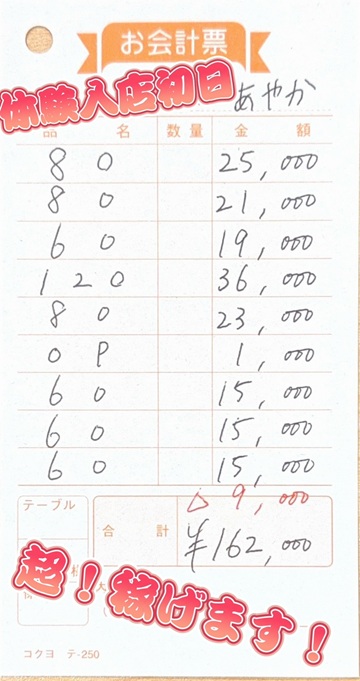 お会計票
体験入店初日
あやか
品 名 数量 金 額
80 25,000
80 21,000
60 19,000
120 36,000
80 23,000
OP 1,000
60 15,000
60 15,000
60 15,000
△ 9,000
テーブル
合 計 ¥162,000
様
大
超!稼げます!
コクヨ テ-250